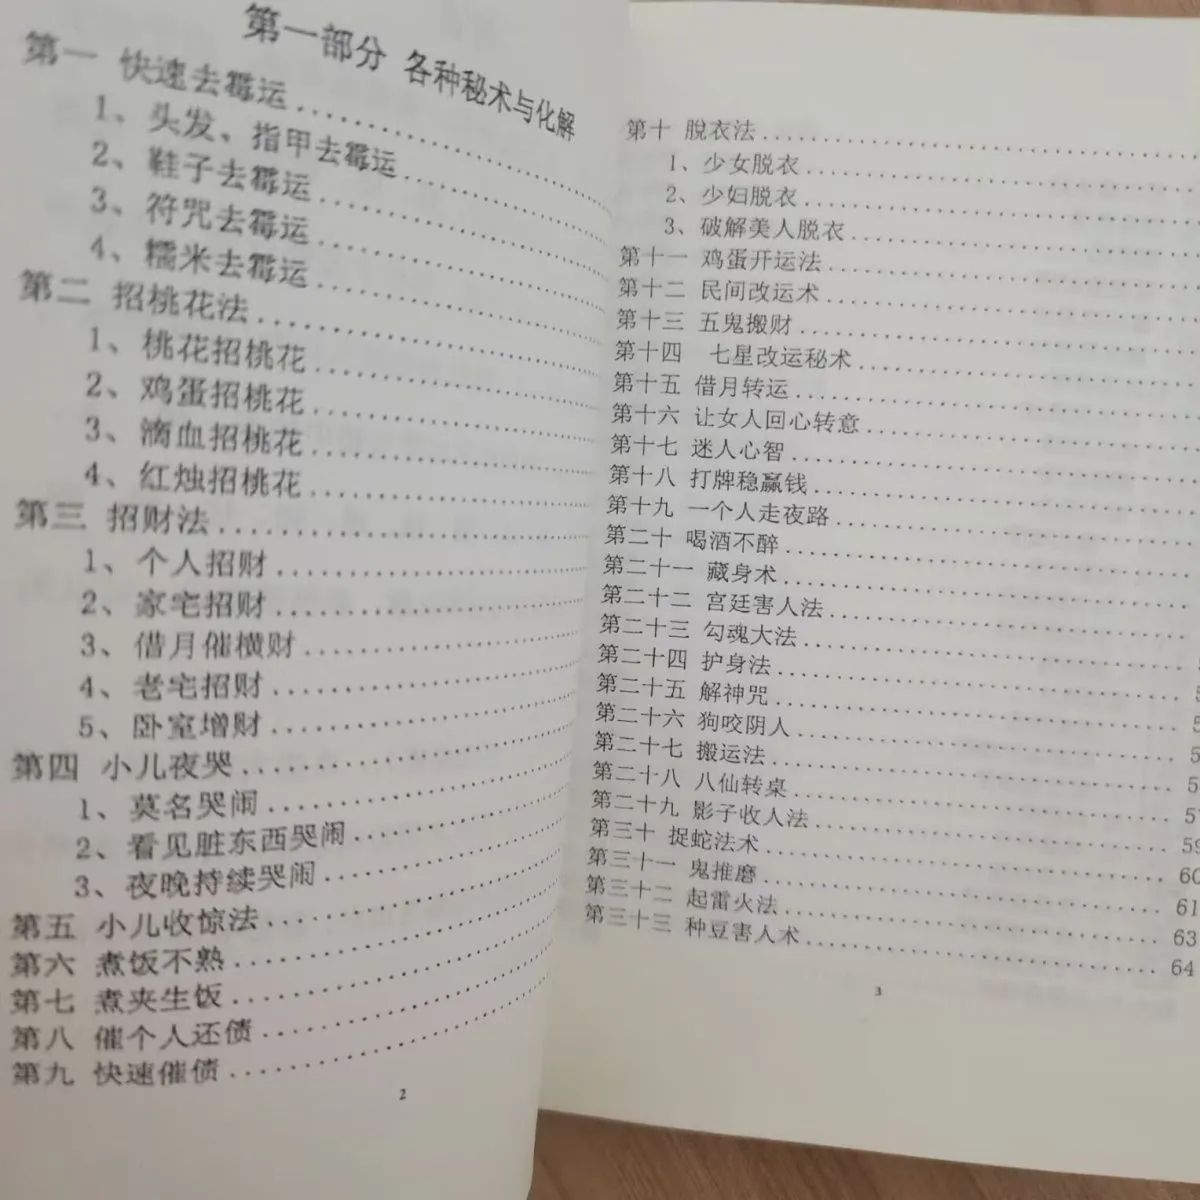 第一部分 各种秘术与化解
第一 快速去霉运
1、头发、指甲去霉运
2、鞋子去霉运
3、符咒去霉运
4、糯米去霉运
第二 招桃花法
1、桃花招桃花
2、鸡蛋招桃花
3、滴血招桃花
4、红烛招桃花
第三 招财法
1、个人招财
2、家宅招财
3、借月催横财
4、老宅招财
5、卧室增财
第四 小儿夜哭
1、莫名哭闹
2、看见脏东西哭闹
3、夜晚持续哭闹
第五 小儿收惊法
第六 煮饭不熟
第七 煮夹生饭
第八 催个人还债
第九 快速催债
2
第十 脱衣法
1、少女脱衣
2、少妇脱衣
3、破解美人脱衣
第十一 鸡蛋开运法
第十二 民间改运术
第十三 五鬼搬财
第十四 七星改运秘术
第十五 借月转运
第十六 让女人回心转意
第十七 迷人心智
第十八 打牌稳赢钱
第十九 一个人走夜路
第二十 喝酒不醉
第二十一 藏身术
第二十二 宫廷害人法
第二十三 勾魂大法
第二十四 护身法
第二十五 解神咒
第二十六 狗咬阴人
第二十七 搬运法
第二十八 八仙转桌
第二十九 影子收人法
第三十 捉蛇法术 59
第三十一 鬼推磨 60
第三十二 起雷火法 61
第三十三 种豆害人术 63
64
3